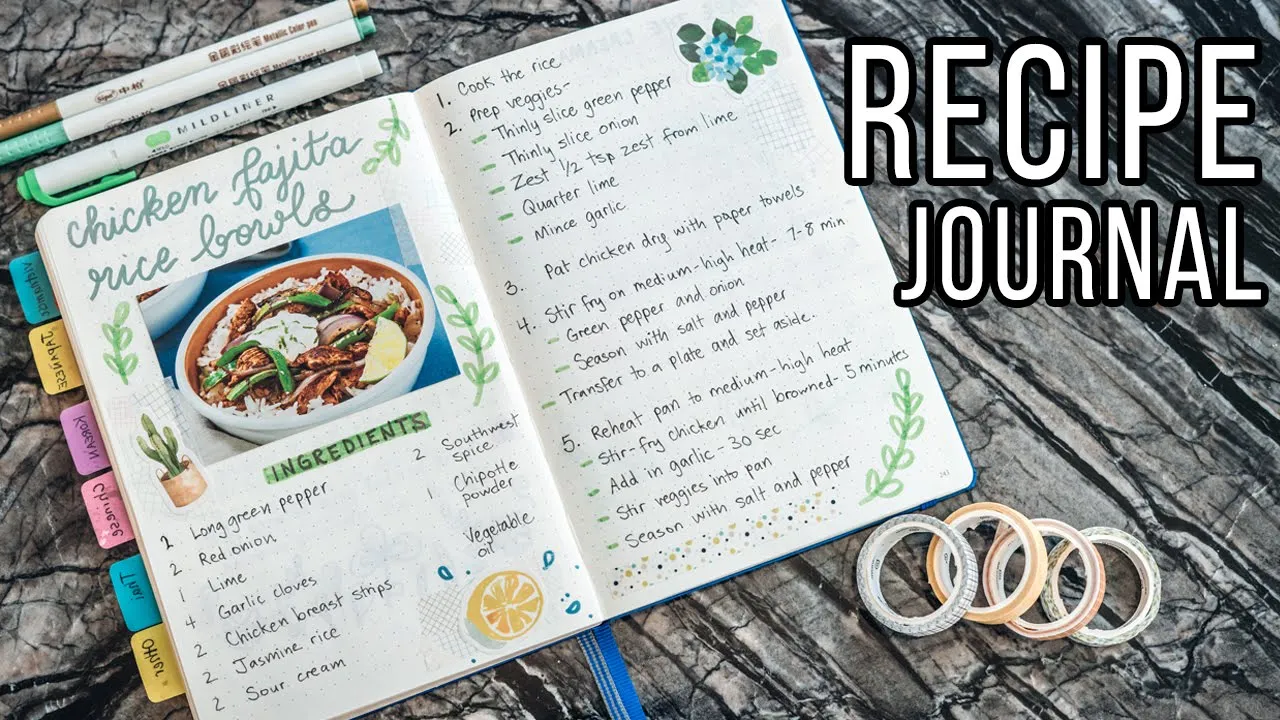 RECIPE
JOURNAL
金属彩绘笔 Metallic Color pen
金属彩绘笔 Metallic Color pen
MILDLINER
chicken fajita
rice bowls
INGREDIENTS
2 Long green pepper
2 Red onion
1 Lime
4 Garlic cloves
2 Chicken breast strips
2 Jasmine rice
2 Sour cream
2 Southwest
spice
1 Chipotle
powder
Vegetable
oil
1. Cook the rice
2. Prep veggies-
- Thinly slice green pepper
- Thinly slice onion
- Zest 1/2 tsp zest from lime
- Quarter lime
- Mince garlic
3. Pat chicken dry with paper towels
4. Stir fry on medium-high heat- 7-8 min
- Green pepper and onion
- Season with salt and pepper
- Transfer to a plate and set aside.
5. Reheat pan to medium-high heat
- Stir-fry chicken until browned- 5 minutes
- Add in garlic - 30 sec
- Stir veggies into pan
- Season with salt and pepper
VIETNAMESE
JAPANESE
KOREAN
CHINESE
THAI
OTHER